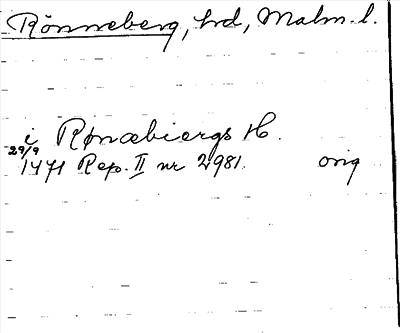 Rönneberg, hd, Malm. l.
i Rønæbiergs H.
29/9 1471 Rep. II nr 2981. orig